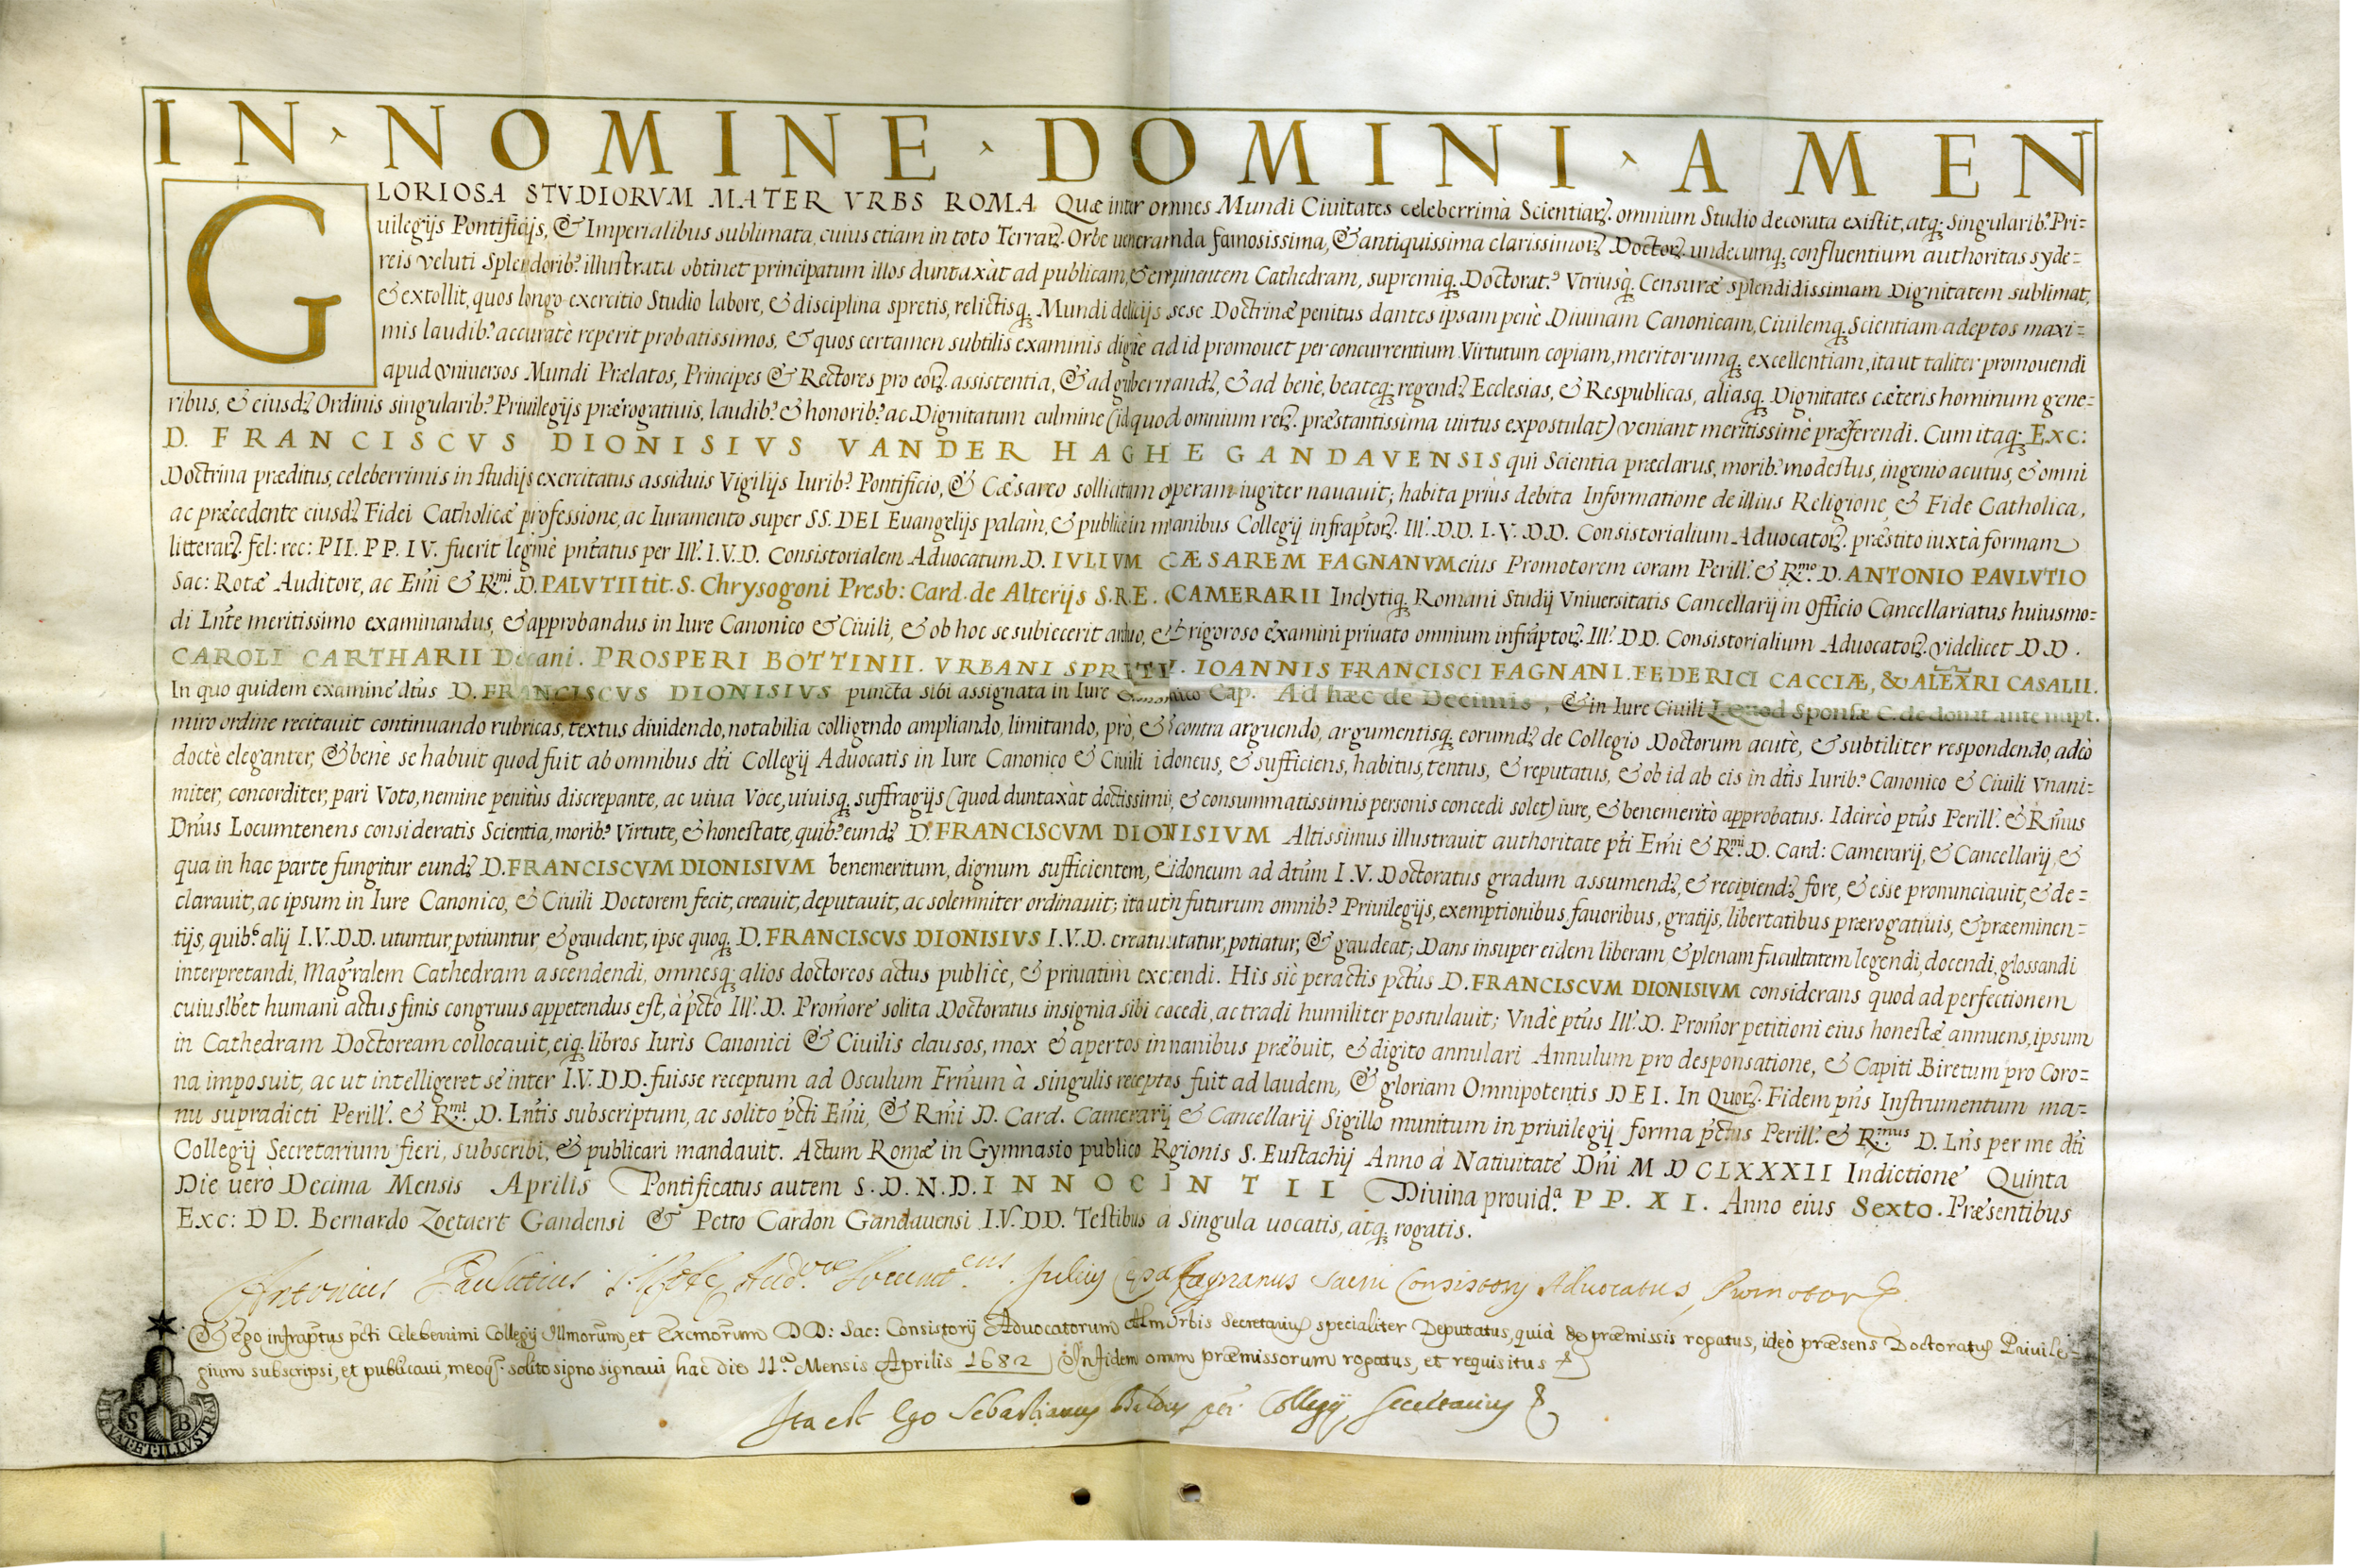 IN · NOMINE · DOMINI · AMEN
GLORIOSA STVDIORVM MATER VRBS ROMA Quæ inter omnes Mundi Ciuitates celeberrima Scientiaꝝ omnium Studio decorata existit, atq; singularib9 Pri=
uilegijs Pontificijs, & Imperialibus sublimata, cuius etiam in toto Terraꝝ Orbe ueneranda famosissima, & antiquissima clarissimoꝝ Doctoꝝ undecumq; confluentium authoritas syde=
reis veluti Splendorib9 illustrata obtinet principatum illos duntaxàt ad publicam, & eminentem Cathedram, supremiq; Doctorat9 Vtriusq; Censuræ splendidissimam Dignitatem sublimat,
& extollit, quos longo exercitio Studio labore, & disciplina spretis, relictisq; Mundi delicijs sese Doctrinæ penitus dantes ipsam penè Diuinam Canonicam, Ciuilemq; Scientiam adeptos maxi=
mis laudib9 accuratè reperit probatissimos, & quos certamen subtilis examinis dignè ad id promouet per concurrentium Virtutum copiam, meritorumq; excellentiam, ita ut taliter promouendi
apud vniuersos Mundi Prælatos, Principes & Rectores pro eoꝝ assistentia, & ad gubernandꝫ, & ad benè, beateq; regendꝫ Ecclesias, & Respublicas, aliasq; Dignitates cæteris hominum gene=
ribus, & eiusdꝫ Ordinis singularib9 Priuilegijs prærogatiuis, laudib9 & honorib9 ac Dignitatum culmine (id quod omnium reꝝ præstantissima uirtus expostulat) veniant meritissimè præferendi. Cum itaq; Exc:
D. FRANCISCVS DIONISIVS VANDER HAGHE GANDAVENSIS qui Scientia præclarus, morib9 modestus, ingenio acutus, & omni
Doctrina præditus, celeberrimis in studijs exercitatus assiduis Vigilijs Iurib9 Pontificio, & Cæsareo sollicitam operam iugiter nauauit; habita priùs debita Informatione de illius Religione, & Fide Catholica,
ac præcedente eiusdꝫ Fidei Catholicæ professione, ac Iuramento super SS. DEI Euangelijs palàm, & publicè in manibus Collegij infraptoꝝ Ill. DD. I. V. DD. Consistorialium Aduocatoꝝ præstito iuxtà formam
litteraꝝ fel: rec: PII. PP. IV. fuerit legitimè pñtatus per Ill. I. V. D. Consistorialem Aduocatum D. IVLIVM CÆSAREM FAGNANVM eius Promotorem coram Perill. & Rmo D. ANTONIO PAVLVTIO
Sac: Rotæ Auditore, ac Emi & Rmi D. PALVTII tit. S. Chrysogoni Presb: Card. de Alterijs S. R. E. CAMERARII Inclytiq; Romani Studij Vniuersitatis Cancellarij in Officio Cancellariatus huiusmo=
di Lnte meritissimo examinandus, & approbandus in Iure Canonico & Ciuili, & ob hoc se subiecerit arduo, & rigoroso examini priuato omnium infraptoꝝ Ill. DD. Consistorialium Aduocatoꝝ videlicet DD.
CAROLI CARTHARII Decani. PROSPERI BOTTINII. VRBANI SPRETI. IOANNIS FRANCISCI FAGNANI. FEDERICI CACCIÆ, & ALEXRI CASALII.
In quo quidem examine dtus D. FRANCISCVS DIONISIVS puncta sibi assignata in Iure Canonico Cap. Ad hæc de Decimis, & in Iure Ciuili L. Quod Sponsæ C. de donat ante nupt.
miro ordine recitauit continuando rubricas, textus diuidendo, notabilia colligendo ampliando, limitando, prò, & contra arguendo, argumentisq; eorumdꝫ de Collegio Doctorum acutè, & subtiliter respondendo, adeò
doctè eleganter, & benè se habuit quod fuit ab omnibus dti Collegij Aduocatis in Iure Canonico & Ciuili idoneus, & sufficiens, habitus, tentus, & reputatus, & ob id ab eis in dtis Iurib9 Canonico & Ciuili Vnani=
miter, concorditer, pari Voto, nemine penitùs discrepante, ac uiua Voce, uiuisq; suffragijs (quod duntaxàt doctissimis, & consummatissimis personis concedi solet) iure, & benemeritò approbatus. Idcircò ptus Perill. & Rmus
Dnus Locumtenens consideratis Scientia, morib9 Virtute, & honestate, quib9 eundꝫ D. FRANCISCVM DIONISIVM Altissimus illustrauit authoritate pti Emi & Rmi D. Card: Camerarij, & Cancellarij, &
qua in hac parte fungitur eundꝫ D. FRANCISCVM DIONISIVM benemeritum, dignum sufficientem, & idoneum ad dtum I. V. Doctoratus gradum assumendꝫ, & recipiendꝫ fore, & esse pronunciauit, & de=
clarauit, ac ipsum in Iure Canonico, & Ciuili Doctorem fecit, creauit, deputauit, ac solemniter ordinauit; ita ut in futurum omnib9 Priuilegijs, exemptionibus, fauoribus, gratijs, libertatibus prærogatiuis, & præeminen=
tijs, quib9 alij I. V. DD. utuntur, potiuntur, & gaudent, ipse quoq; D. FRANCISCVS DIONISIVS I. V. D. creatus utatur, potiatur, & gaudeat; Dans insuper eidem liberam, & plenam facultatem legendi, docendi, glossandi
interpretandi, Magralem Cathedram ascendendi, omnesq; alios doctoreos actus publicè, & priuatim exercendi. His sic peractis pctus D. FRANCISCVM DIONISIVM considerans quod ad perfectionem
cuiuslbet humani actus finis congruus appetendus est, à pcto Ill. D. Promore solita Doctoratus insignia sibi cocedi, ac tradi humiliter postulauit; Vndè ptus Ill. D. Promor petitioni eius honestæ annuens, ipsum
in Cathedram Doctoream collocauit, eiq; libros Iuris Canonici & Ciuilis clausos, mox & apertos in manibus præbuit, & digito annulari Annulum pro desponsatione, & Capiti Biretum pro Coro=
na imposuit, ac ut intelligeret se inter I. V. DD. fuisse receptum ad Osculum Frnum à singulis receptus fuit ad laudem, & gloriam Omnipotentis DEI. In Quoꝝ Fidem pñs Instrumentum ma=
nu supradicti Perill. & Rmi D. Lntis subscriptum, ac solito pcti Emi, & Rmi D. Card. Camerarij & Cancellarij Sigillo munitum in priuilegij forma pctus Perill. & Rmus D. Lns per me dti
Collegij Secretarium fieri, subscribi, & publicari mandauit. Actum Romæ in Gymnasio publico Regionis S. Eustachij Anno à Natiuitate Dni MDCLXXXII Indictione Quinta
Die uerò Decima Mensis Aprilis Pontificatus autem S. D. N. D. INNOCINTII Diuina prouida PP. XI. Anno eius Sexto. Præsentibus
Exc: DD. Bernardo Zoetaert Gandensi & Petro Cardon Gandauensi I. V. DD. Testibus a singula uocatis, atq; rogatis.
Antonius Paulutius S. Rotæ Audor Locumtens. Julius Cæsar Fagnanus Sacri Consistorij Aduocatus, Promotor
Et Ego infraptus pcti Celeberrimi Collegij Illmorum, et Excmorum DD: Sac: Consistorij Aduocatorum Almæ Urbis Secretarius specialiter Deputatus, quià de præmissis rogatus, ideò præsens Doctoratus Priuile=
gium subscripsi, et publicaui, meoq; solito signo signaui hac die 11a Mensis Aprilis 1682 In fidem omnium præmissorum rogatus, et requisitus
Ita est Ego Sebastianus Collegij Secretarius
S B
ET ILLVSTRAT